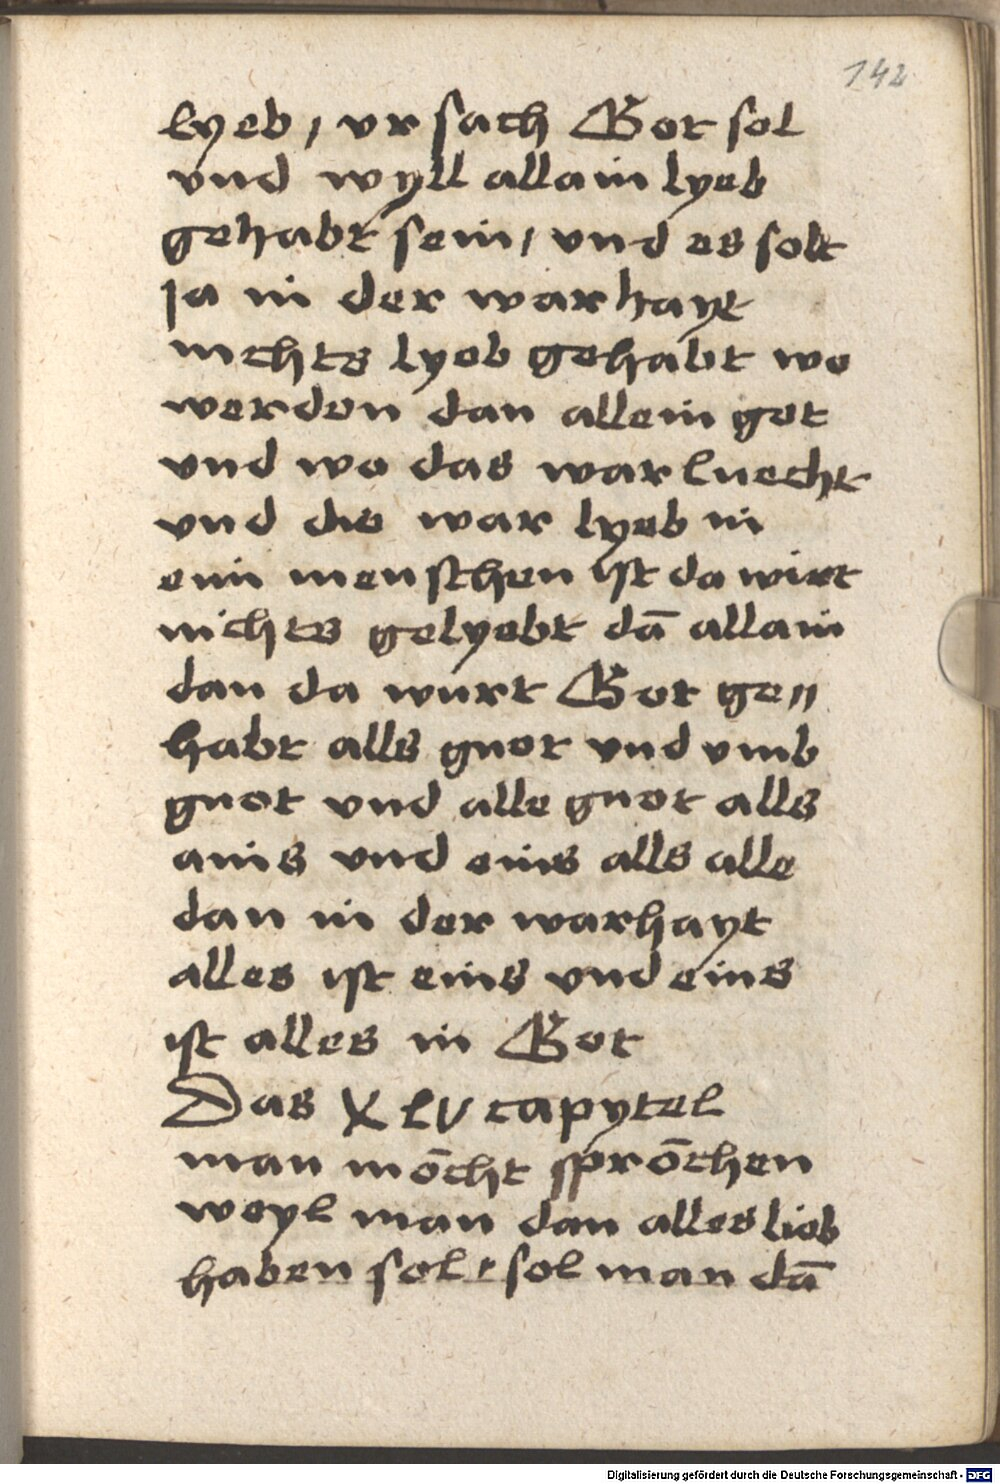 142
lyeb / vrsach Got sol
vnd wyll allain lyeb
gehabt sein / vnd es solt
ja in der warhayt
nichts lyeb gehabt we
werden dan allein got
vnd wo das war luecht
vnd die war lyeb in
eim menschen ist da wirt
nichts gelyebt dā allain
dan da wurt Got ge〃
habt alls guot vnd vmb
guot vnd alle guot alls
ains vnd eins alls alle
dan in der warhayt
alles ist eins vnd eins
ist alles in Got
Das XLV capytel
man mōcht sprōchen
weyl man dan alles lieb
haben sol / sol man dā
Digitalisierung gefördert durch die Deutsche Forschungsgemeinschaft - DFG